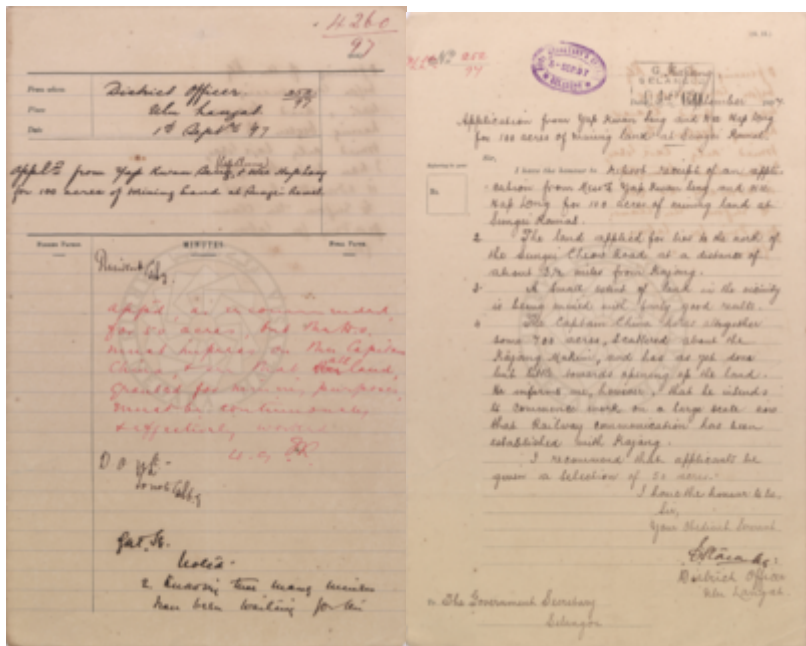 4260
97
From whom
District Officer 252
97
Place
Ulu Langat
Date
1st Septr 97
Appln from Yap Kwan Seng,
for 100 acres of Mining Land at Sungei Ramal
MINUTES.
Resident
app'd as recommended
for 50 acres, but the D.O.
must impress on the Capitan
China, that all land,
granted for mining purposes
must be continuously
& effectively worked
D.O.
Govt. Sec.
Noted.
2. Knowing how many
have been waiting for
252
97
8-SEP.97
SELANGOR
SELANGOR
September
Application from Yap Kwan Seng and Wee Hap Long
for 100 acres of mining land at Sungei Ramal
Sir,
I have the honour to report receipt of an appli-
-cation from Messrs Yap Kwan Seng and Wee
Hap Long for 100 acres of mining land at
Sungei Ramal.
No.
2. The land applied for lies to the north of
the Sungei Chua Road at a distance of
about 3½ miles from Kajang.
3. A small extent of land in the vicinity
is being mined with fairly good results.
4. The Captain China holds altogether
some 700 acres, scattered about the
Kajang Mukim, and has as yet done
but little towards opening up the land.
He informs me, however, that he intends
to commence work on a large scale now
that Railway communication has been
established with Kajang.
I recommend that applicants be
given a selection of 50 acres.
I have the honour to be,
Sir,
Your obedient Servant
District Officer
Ulu Langat
The Government Secretary
Selangor